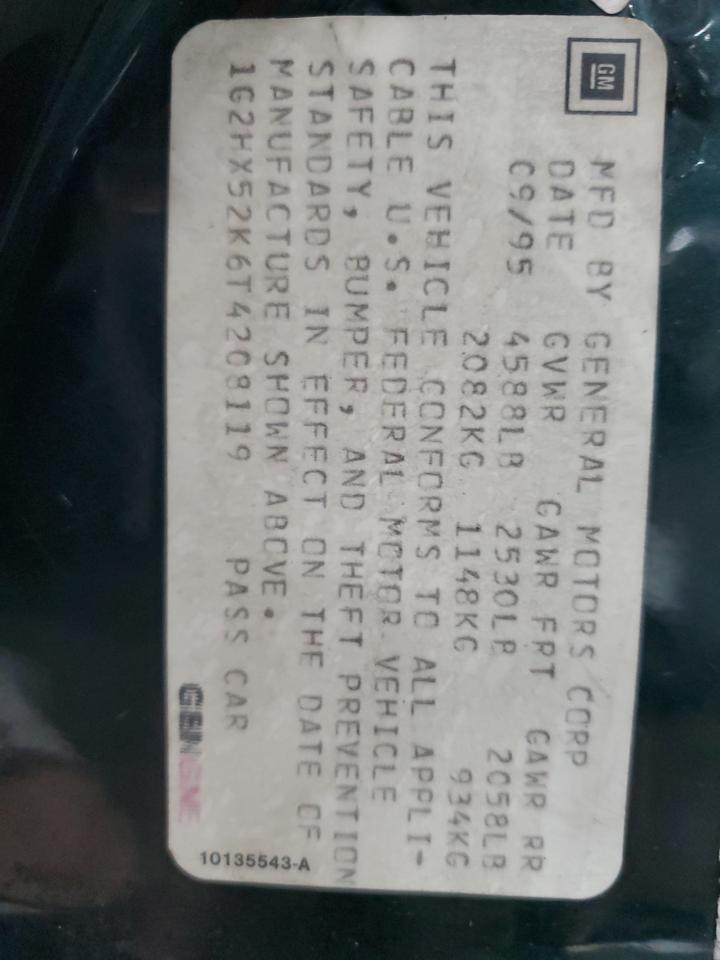 GM
MFD BY GENERAL MOTORS CORP
DATE GVWR GAWR FRT GAWR RR
09/95 4588LB 2530LB 2058LB
2082KG 1148KG 934KG
THIS VEHICLE CONFORMS TO ALL APPLI-
CABLE U.S. FEDERAL MOTOR VEHICLE
SAFETY, BUMPER, AND THEFT PREVENTION
STANDARDS IN EFFECT ON THE DATE OF
MANUFACTURE SHOWN ABOVE.
1G2HX52K6T4208119 PASS CAR
10135543-A